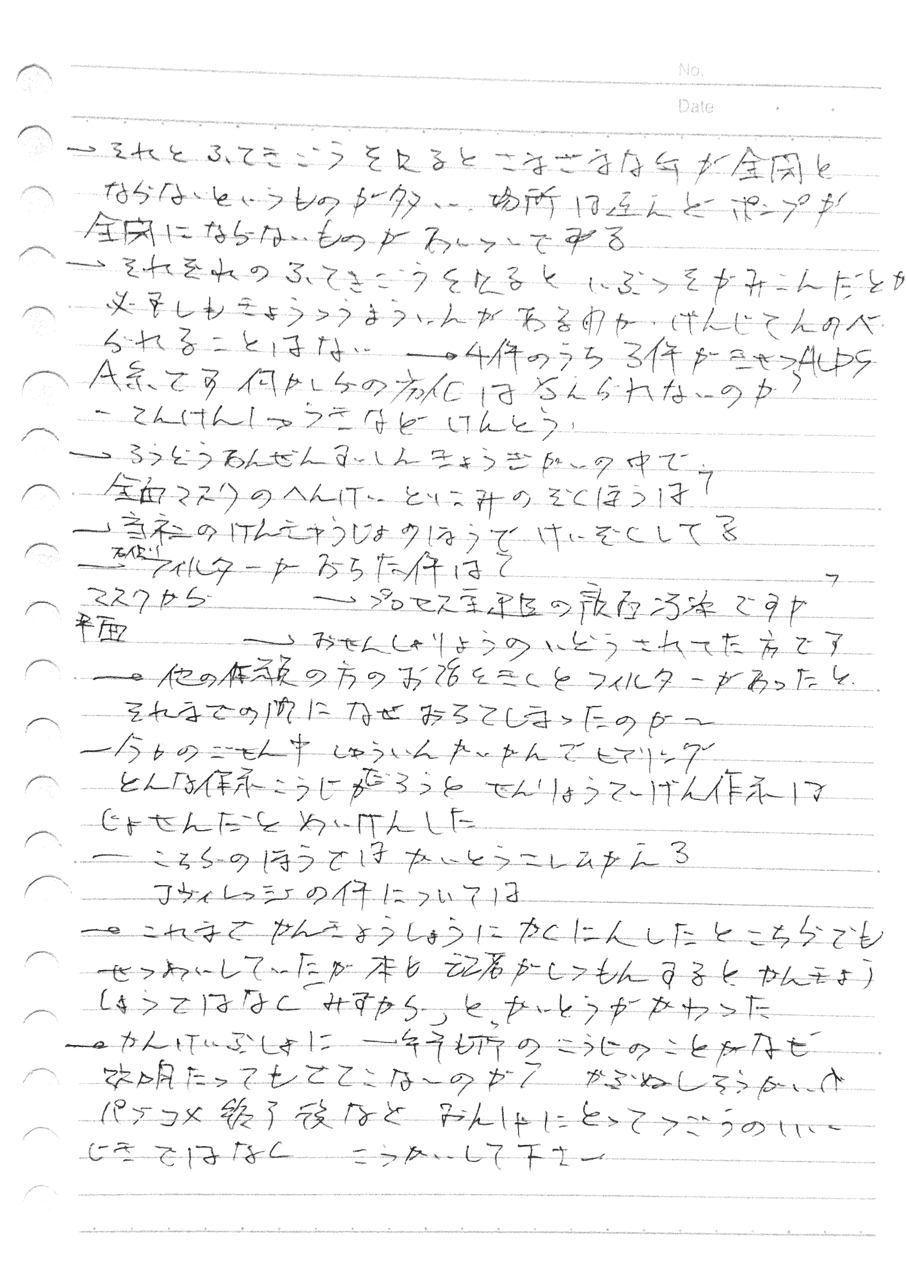 No.
Date
→ それと ふてきごう を見ると さまざまな弁が全閉と
ならないというものが多い. 場所は ポンプが
全閉にならないものが あいついでいる
→ それぞれのふてきごうを見ると いぶつをかみこんだとか
必ずしもきょうつうよういんがあるわけ げんじてんのべ
られることはない → 4件のうち 3件が きせつALPS
A系です 何かしらの劣化は 考えられないのか?
- てんけんしゅうきなど けんとう.
→ ろうどうあんぜんすいしんきょうぎかいの中で
全面マスクのへんけい とりこみのぞくほうは?
→ 当社のけんきゅうじょのほうで けいぞくしてる
→ フィルターがおちた件は?
マスクから → プロセス主建屋の ですか?
平面
→ おせんしゃりょうのいどうされてた方です
→ 他の作業の方のお話をきくとフィルターがあったと
それまでの間に なぜ おちてしまったのか〜
- 今日のごぜん中 しゅういんかいかんでヒアリング
どんな作業こうじだろうと せんりょうていげん作業は
じょせんだと めいげんした
- こちらのほうでは かいとうさしひかえる
Jヴィレッジの件については
→ これまで かんきょうしょうに かくにんしたとこちらでも
せつめいしていたが 本日 記者がしつもんすると かんきょう
しょうではなく「みずから」と かいとうが かわった
→ かんけいぶしょに 一年も前のこうじのことがなぜ
数ヶ月たってもでてこないのか? かぶぬしそうかいや
パブコメ終了後など おんしゃにとってつごうのいい
じきではなく こうかいして下さい